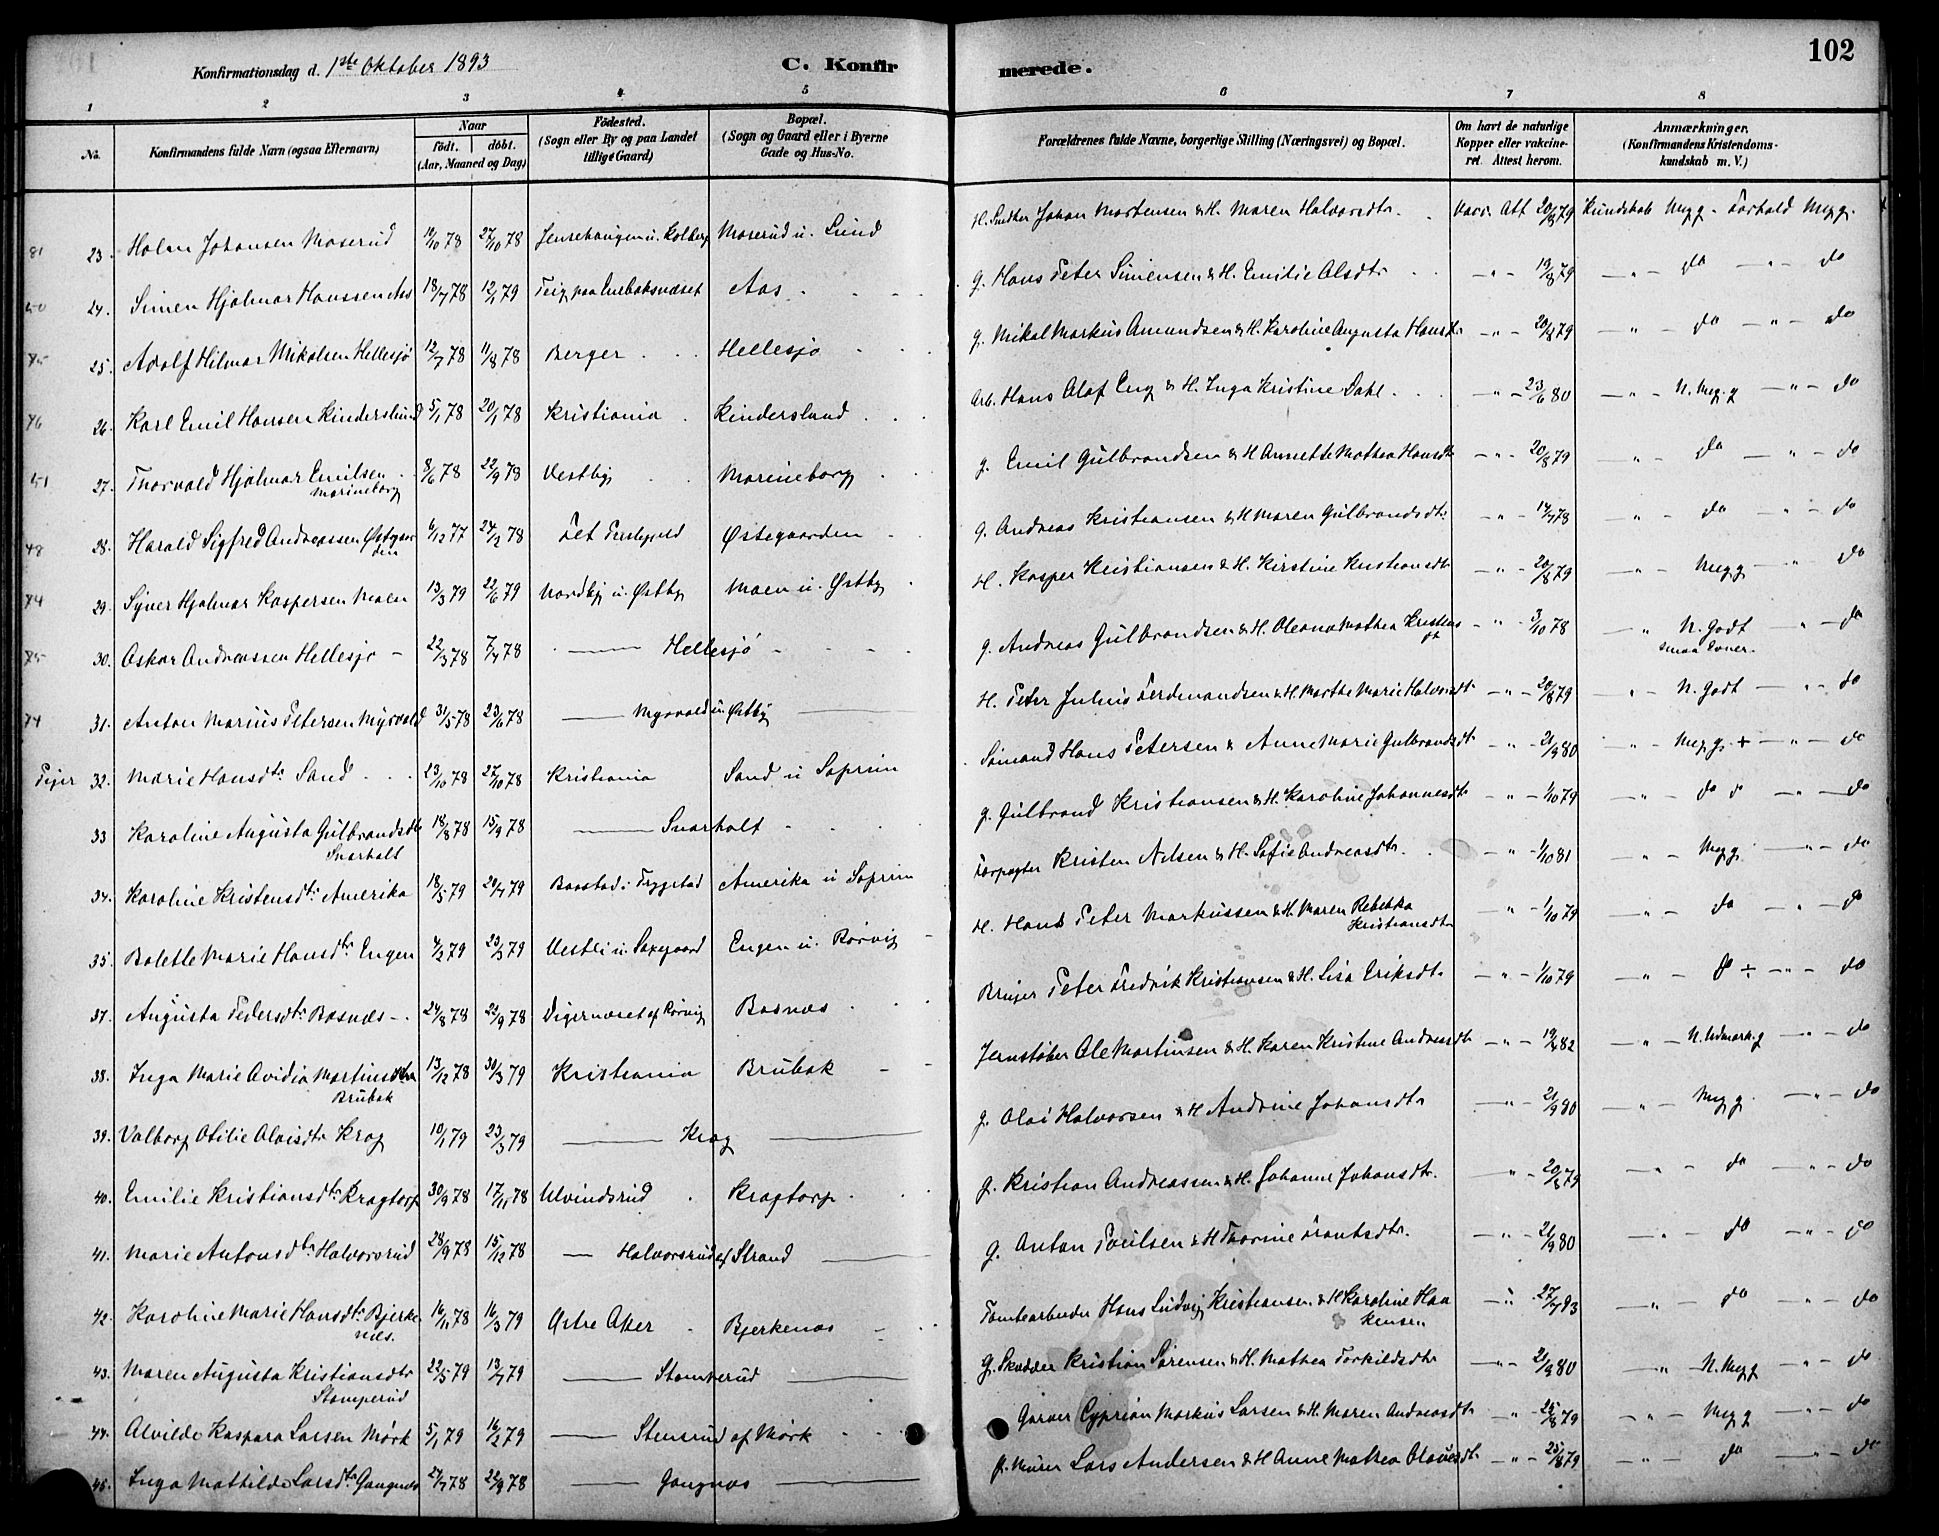 Konfirmationsdag d. 1ste Oktober 1893 C. Konfirmerede. 102
1 2 3 4 5 6 7 8
No. Konfirmandens fulde Navn (ogsaa Efternavn) Naar født. døbt. (Aar, Maaned og Dag) Fødested. (Sogn eller By og paa Landet tillige Gaard) Bopæl. (Sogn og Gaard eller i Byerne Gade og Hus-No. Forældrenes fulde Navne, borgerlige Stilling (Næringsvei) og Bopæl. Om havt de naturlige Kopper eller vakcineret. Attest herom. Anmærkninger. (Konfirmandens Kristendomskundskab m. V.)
81 23. Holm Johansen Moserud 19/10 78 27/10 78 Jensehaugen u. Kolberg Moserud u. Lund H. Snedker Johan Mortensen & H. Maren Halvorsdtr. Vacc. Att 20/8 79 Kundskab Meg g. Forhold Meg g.
50 24. Simen Hjalmar Hanssen Aas 18/7 78 12/1 79 Teig paa Enebaknæset Aas G. Hans Peter Simensen & H. Emilie Olsdtr 19/8 79 do do
85 25. Adolf Hilmar Mikalsen Hellesjø 12/7 78 11/8 78 Berger Hellesjø G. Mikal Markus Amundsen & H. Karoline Augusta Hansdtr 20/8 79 do do
76 26. Karl Emil Hansen Kinderslund 5/1 78 20/1 78 Kristiania Kinderslund Arb. Hans Olaf Eng & H. Inga Kristine Dahl 23/6 80 N. Meg. g do
51 27. Thorvald Hjalmar Emilsen Marineborg 8/6 78 22/9 78 Vestby Marineborg G. Emil Gulbrandsen & H Annette Mathea Hansdtr 20/8 79 do do
48 28. Harald Sigfred Andreassen Østegaarden 6/12 77 24/2 78 Fet Østegaarden G. Andreas Kristiansen & H Maren Gulbrandsdtr 14/7 78 do do
74 29. Syver Hjalmar Kaspersen Moen 13/3 79 22/6 79 Nordby u. Østby Moen u. Østby H. Kasper Kristiansen & H. Kirstine Kristiansdtr 20/8 79 Meg g do
85 30. Oskar Andreassen Hellesjø 22/3 78 7/4 78 Hellesjø G. Andreas Gulbrandsen & H. Oleana Mathea Kristensdt 3/10 78 N. Godt smaa Evner. do
74 31. Anton Marius Petersen Myrvold 31/5 78 23/6 78 Myrvold u. Østby H. Peter Julius Ferdinandsen & H. Marthe Marie Halvorsdtr 20/8 79 N. Godt do
32. Marie Hansdtr Sand 23/10 78 27/10 78 Kristiania Sand u Soprim Sømand Hans Petersen & Anne Marie Gulbrandsdtr 21/9 80 Meg g. + do
33 Karoline Augusta Gulbrandsdtr Snarholt 18/8 78 15/9 78 Snarholt G. Gulbrand Kristiansen & H. Karoline Johannesdtr 1/10 79 do do
34. Karoline Kristensdtr Amerika 18/5 79 20/7 79 Baastad i Trygstad Amerika u Soprim Forpagter Kristen Nilsen & H. Sofie Andreasdtr. 1/10 81 Meg g do
35. Bolette Marie Hansdtr Engen 4/2 79 23/3 79 Vestli u. Saxegaard Engen u. Rørvig H. Hans Peter Markussen & H. Maren Rebekka Kristiansdtr 1/10 79 do do
37. Augusta Pedersdtr Bosnæs 24/8 78 22/9 78 Digernæset af Rørvig Bosnæs Bruger Peter Fredrik Kristiansen & H. Lisa Eriksdtr 1/10 79 do ÷ do
38. Inga Marie Ovidia Martinsdtr Brubak 13/12 78 30/3 79 Kristiania Brubak Jernstøber Ole Martinsen & H. Karen Kristine Andreasdtr 19/4 82 N. Udmærk. g do
39. Valborg Otilie Olaisdtr Krog 10/1 79 23/3 79 Krog G. Olai Halvorsen & H Andrine Johansdtr 21/9 80 Meg g. do
40. Emilie Kristiansdtr Krogtorp 30/9 78 17/11 78 Ulvindsrud Krogtorp G. Kristian Andreassen & H. Johanne Johansdtr. 20/8 79 do do
41. Marie Antonsdtr Halvorsrud 28/9 78 15/12 78 Halvorsrud af Strand G. Anton Poulsen & H Thorine Frantsdtr. 21/9 80 do do
42. Karoline Marie Hansdtr Bjerkenæs. 16/11 78 16/3 79 Østre Aker Bjerkenæs Tomtearbeider Hans Ludvig Kristiansen & H Karoline Haakensen 27/7 93 do do
43. Maren Augusta Kristiansdtr Stomperud 22/5 79 13/7 79 Stomperud G. Skrædder Kristian Sørensen & H. Mathea Torkildsdtr 21/9 80 N. Meg g do
44. Alvilde Kaspara Larsen Mørk 5/1 79 16/2 79 Stensrud af Mørk Garver Cyprian Markus Larsen & H. Maren Andreasdtr 25/8 79 Meg g do
45. Inga Mathilde Larsdtr Gangnæs 27/7 78 22/9 78 Gangnæs Murer Lars Andersen & H Anne Mathea Olavesdtr 25/8 79 do do